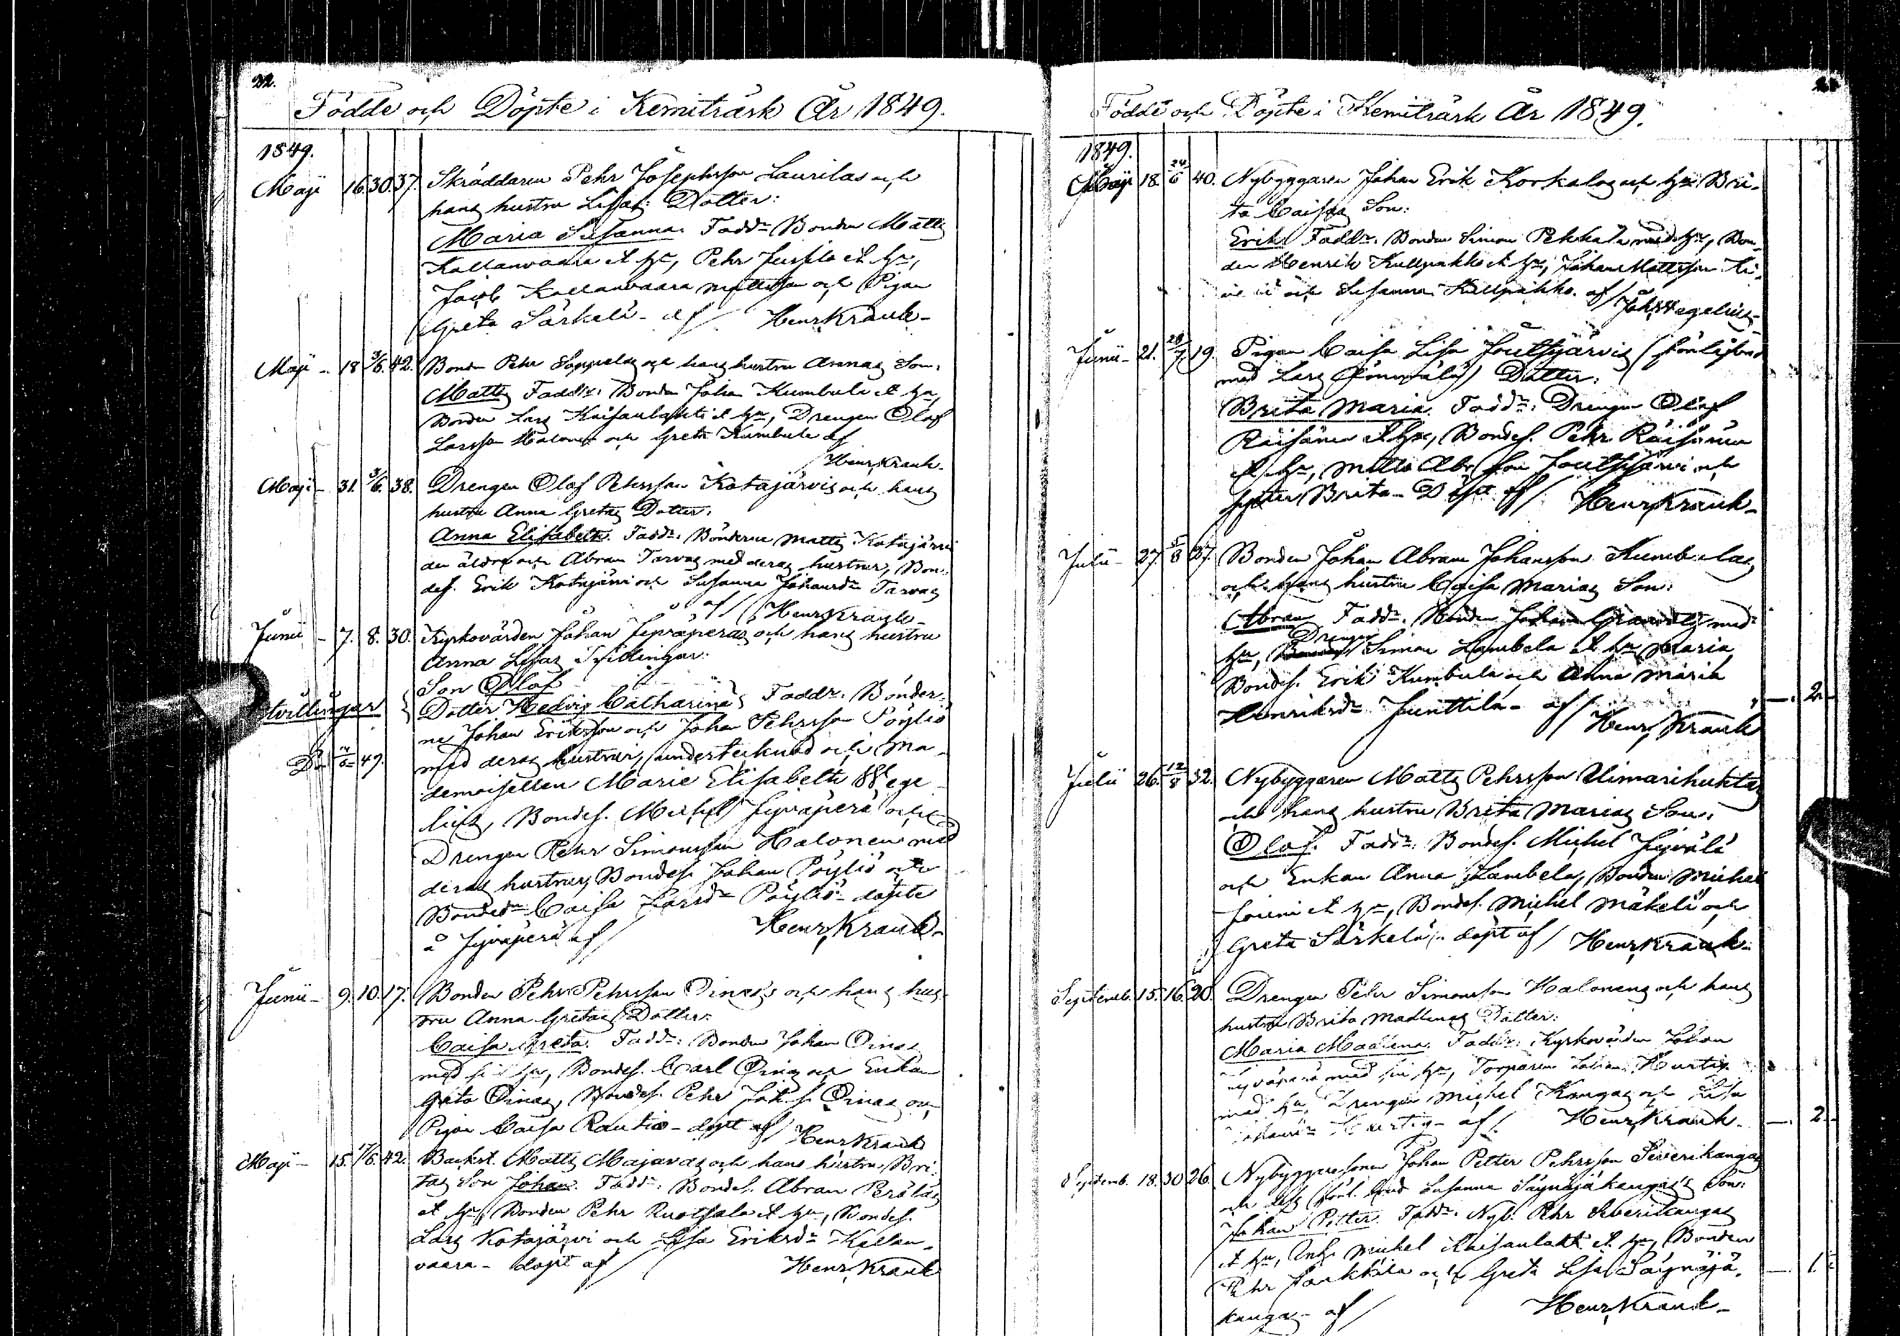 22.
Födde och Döpte i Kemiträsk År 1849.
1849.
Maji 16. 30. 37. Skräddaren Pehr Josephsson Laurilas och
hans hustru Lisas Dotter:
Maria Susanna. Fadd: Bonden Matts
Kallanvaara et hu, Pehr Jussila et hu,
Jacob Kallanvaara Mattsson och Pigan
Greta Särkelä - af Henr. Krank -
Maji - 18 3/6. 42. Bonden Pehr och hans hustru Annas Son:
Matts Faddr: Bonden Johan Kumbula et hu,
Bonden Lars Kaisanlahti et hu, Drengen Olof
Larsson Halonen och Greta Kumbula af
Henr. Krank -
Maji - 31. 3/6. 38. Drengen Olof Pehrsson Katajärvis och hans
hustru Anna Gretas Dotter:
Anna Elisabeth. Fadd: Bönderne Matts Katajärvi
den äldre och Abram Tarvas med deras hustrur, Bon-
des. Erik Katajärvi och Susanna Johansdr Tarvas
af Henr. Krank -
Junii - 7. 8. 30. Kyrkovärden Johan Jyväperas och hans hustru
Anna Lisas Tvillingar:
Son Olof
tvillingar Dotter Hedvig Catharina Faddr: Bönder-
ne Johan Eriksson och Johan Pehrsson Pöyliö
Dn 49. med deras hustrur, undertecknad och Ma-
demoisellen Marie Elisabeth Wege-
lius, Bondes. Michel Jyväperä och
Drengen Pehr Simonsson Halonen med
deras hustrur, Bondes. Johan Pöyliö och
Bondedr Caisa Larsdr Pöyliö - döpte
å Jyväperä af Henr. Krank -
Junii - 9. 10. 17. Bonden Pehr Pehrsson Oinas's och hans hus-
tru Anna Gretas Dotter:
Caisa Greta. Fadd: Bonden Johan Oinas
med sin hu, Bondes. Carl Oinas och Enkan
Greta Oinas, Bondes. Pehr Joh. s. Oinas och
Pigan Caisa Rautio - döpt af Henr. Krank
Maji - 15. 17/6. 42. Backst. Matts Majavas och hans hustru Bri-
tas Son Johan. Fadd: Bondes. Abram Perälä
et hu, Bonden Pehr Ruotsala et hu, Bondes.
Lars Katajärvi och Lisa Eriksdr Kallan-
vaara - döpt af Henr. Krank
Födde och Döpte i Kemiträsk År 1849.
1849.
Maji 18. 24/6 40. Nybyggaren Johan Erik Korkalas och hu Bri-
ta Caisas Son:
Erik Faddr: Bonden Simon Pekkala med hu, Bon-
den Henrik Kullpakko et hu, Johan Mattsson
och Susanna Kullpakko. af Joh. Wegelius -
Junii - 21. 28/7 19. Pigan Caisa Lisa Joutsijärvis (förlofvad
med Lars) Dotter:
Brita Maria. Fadd: Drengen Olof
Räisänen et hu, Bondes. Pehr Räisänen
et hu, Matts Abr. son Joutsijärvi och
syster Brita - Döpt af Henr. Krank -
Julii - 27. 5/8 27. Bonden Johan Abram Johansson Kumbulas
och hans hustru Caisa Marias Son:
Abram Fadd: Bonden Johan med
hu, Drengen Simon Lambela et hu Maria
Bondes. Erik Kumbula och Anna Maria
Henriksdr Junttila - af Henr. Krank - 2 -
Julii 26. 12/8 32. Nybyggaren Matts Pehrsson Uimarihuhtas
och hans hustru Brita Marias Son:
Olof. Fadd: Bondes. Michel Jyvälä
och Enkan Anna Lambela, Bonden Michel
Jouni et hu, Bondes. Michel Mäkelä och
Greta Särkelä - döpt af Henr. Krank -
Septemb. 15. 16. 20. Drengen Pehr Simonsson Halonens och hans
hustru Brita Madlenas Dotter:
Maria Madlena. Fadd: Kyrkovärden Johan
Jyväperä med sin hu, Torparen Johan Kurtig
med hu, Drengen Michel Kangas och Lisa
Kurtig - af Henr. Krank - 2 -
Septemb. 18. 30 26. Nybyggaresonen Johan Petter Pehrsson Severikangas
och Susanna Säynäjäkangas's Son:
Johan Petter. Fadd: Nyb. Pehr Severikangas
et hu, Michel Kaisanlahti et hu, Bonden
Pehr och Greta Lisa Säynäjä-
kangas - af Henr. Krank - 1 -